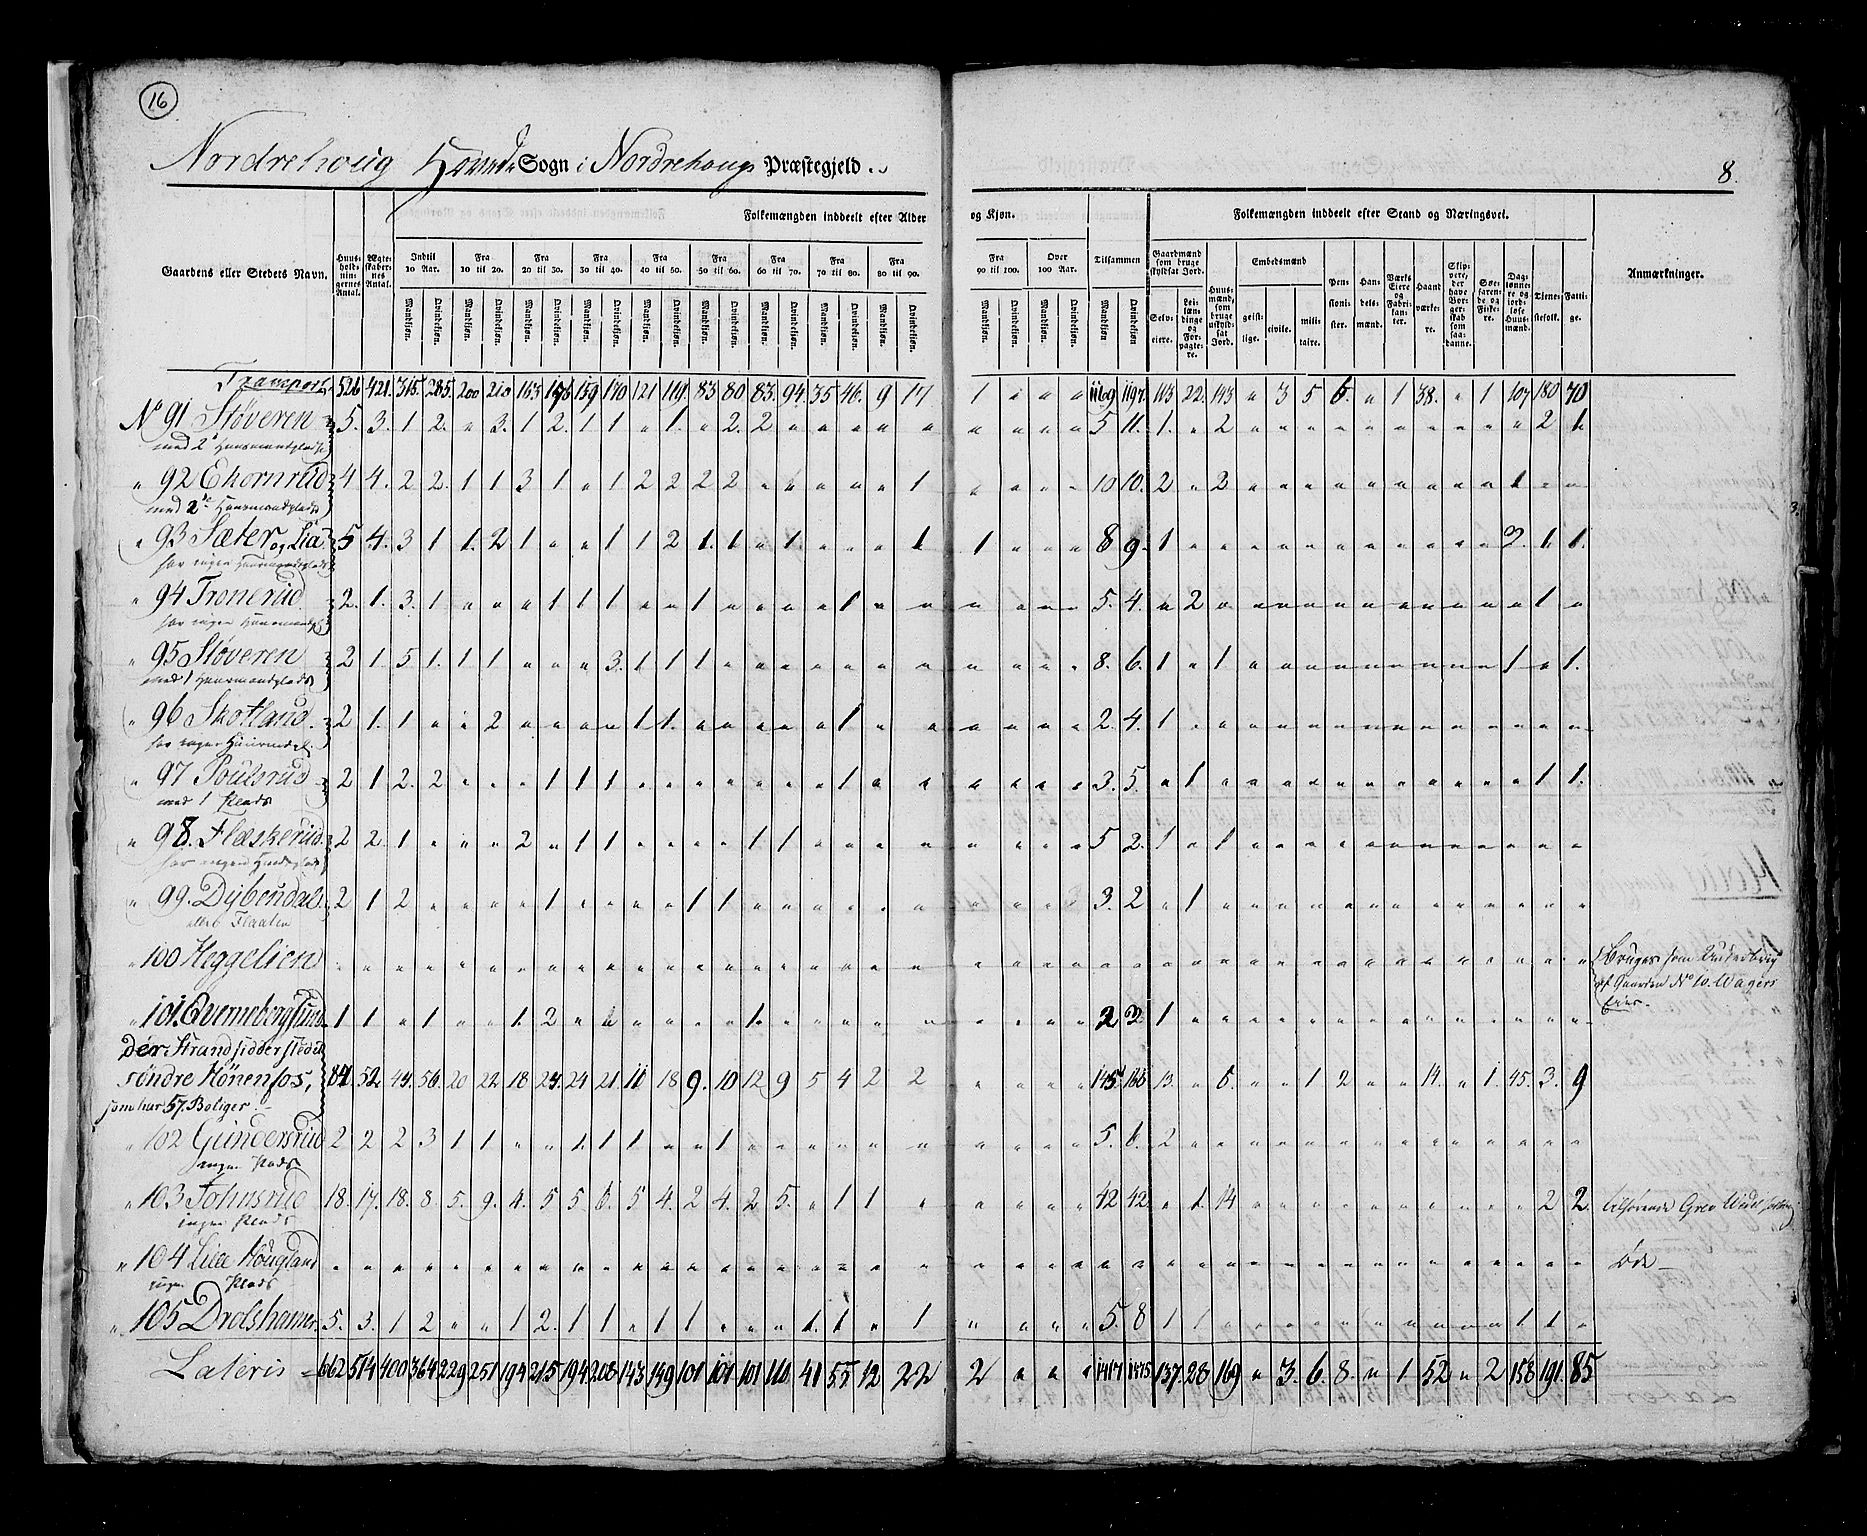 16
Nordrehoug Hoved Sogn i Nordrehougs Præstegjeld.
8.
Gaardens eller Stedets Navn.
Huus-holdnin-gernes Antal.
Ægte-skaber-nes Antal.
Folkemængden inddeelt efter Alder og Kjøn.
Indtil 10 Aar. Fra 10 til 20. Fra 20 til 30. Fra 30 til 40. Fra 40 til 50. Fra 50 til 60. Fra 60 til 70. Fra 70 til 80. Fra 80 til 90. Fra 90 til 100. Over 100 Aar. Tilsammen
Mandkiøn. Qvindekiøn.
Folkemængden inddeelt efter Stand og Næringsvei.
Gaardmænd som bruge skyldsat Jord. Selv-eiere. Lei-lændinge og For-pagte-re.
Huus-mænd, som bruge uskyld-sat Jord.
Embedsmænd geist-lige. civile. mili-taire.
Pen-sioni-ster.
Han-dels-mænd.
Værks Eiere og Fabri-kanter.
Haand værke-re.
Skip-pere, der have Bor-ger-skab som saa-danne.
Søe-farende og Fiske-re.
Dag-lønne-re og jord-løse Huus-mænd.
Tjene-stefolk.
Fatti-ge.
Anmærkninger.
Transport 526 421 315 285 200 210 163 176 159 170 121 119 83 80 83 94 35 46 9 17 1 " " " 1169 1197 113 22 143 " 3 5 6 " 1 38 " 1 107 180 70
No 91 Støveren 5. 3. 1 2. " 3. 1 2. 1 1 " 1. " 2. 2 " " " " " " " " " 5 11. 1. " 2 " " " " " " " " " " 2 1
med 2 Huusmandspladse
" 92 Ekornrud 4 4. 2 2. 1 1 3 1 " 1 2 2 2 2 " " " " " 1 " " " " 10 10. 2 " 2 " " " " " " " " " 1 " "
med 2de Huusmandspladse
" 93 Sæter og Lia 5 4. 3 1 1. 2 1 " " 1 1 2 1. 1 " 1 " " " 1 1 " " " 8 9. 1 " " " " " " " " " " " 2. 1. 1.
har ingen Huusmandsplads
" 94 Tronerud 2. 1. 3. 1 " " " 1 1 1 " " 1 " " " " 1 " " " " " " 5. 4. " 2 " " " " " " " " " " " 1 "
har ingen Huusmandspl.
" 95 Støveren 2 1. 5 1. 1 1 1 " " " 3. 1 1 1 " " " " " " " " " " 8. 6. 1 " 1 " " " " " " " " " 1 " 1.
med 1 Huusmandsplads
" 96 Skotland 2 1. 1 " " 2 " " " " 1 1. " " " " " 1 " " " " " " 2. 4. 1 " " " " " " " " " " " " " "
" 97 Poulsrud 2 1 2. 2 " " " 1 1 1 " " " " " " " 1 " " " " " " 3. 5. " 1 " " " " " " " " " " " 1 1.
med 1 Plads
" 98. Flæskerud 2 2 1 " " " 2 " 1 1 " " " " 1 1 " " " " " " " " 5 2. 1 " 1 " " " " " " " " " " " "
" 99. Dybendal. 2 1 2 " " " " 1 " " " " 1 1 " " " " " " " " " " 3. 2 " 1 " " " " " " " " " " " " "
eller Flaaten
" 100 Heggelien " " " " " " " " " " " " " " " " " " " " " " " " " " " " " " " " " " " " " " " " " Bruges som Underbrug
af Gaarden No 10. Wagers
Eier.
" 101. Qvernebergsund 1 1 " 1 " " 1. 2 " " " " " " 1. " " " " " " " " " 2 2 1 " " " " " " " " " " " " " "
der Strandsidderstedet
søndre Hönenfos, 81. 52. 43. 56. 20 22. 18 23. 24 21. 10 18 9. 10 12 9 5 4 2 2 " " " " 145 166 13. " 6. " " 1 2 " " 14. " 1. 45. 3. 9
som har 57. Boliger.
" 102 Gundersrud 2 2 2 3 1 1 " " 1. 1 1 " " 1 " " " " " " " " " " 5. 6. 2 " " " " " " " " " " " " " "
ingen Plads
" 103 Johnsrud 18. 17. 18. 8. 5. 9. 4. 5 5 6. 5 4. 2 4. 2 5. " 1 1 " " " " " 42 42. " 1. 14 " " " " " " " " " " 2 2 tilhørende Grev Wedel Jarlsberg
ingen Plads
" 104 Lille Hougland " " " " " " " " " " " " " " " " " " " " " " " " " " " " " " " " " " " " " " " " " øde
ingen Plads
" 105 Drolshamer. 5. 3. 1 2 " " 1 2. 1 1 " 1 1 " " " 1. 1. " 1 " " " " 5. 8 1 1 " " " " " " " " " " 1 1 "
Lateris 662 514 400 364 229 251 194 215 194 208 143 149 101 101 101 110 41 55 12 22 2 " " " 1417 1475 137 28 169 " 3. 6. 8. " 1 52 " 2 158 191. 85